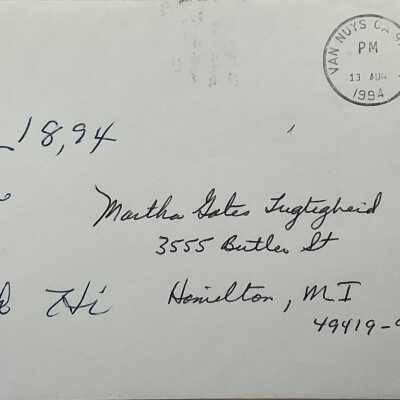 VAN NUYS CA 9
PM
13 AUG
1994
18,94
Martha Gates Tugtigheid
3555 Butler St
Hi Hamilton, MI
49419-9